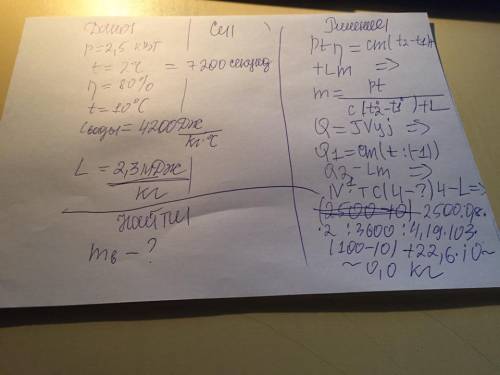 Дано | Си
P=2,5 кВт
t=2ч = 7200 секунд
η=80%
t=10°C
Cводы=4200 Дж/кг·°C
L = 2,3 МДж/кг
Найти
mв - ?
Решение
Ptη=cm(t2-t1)+
+Lm =>
m= Pt/c(t2-t1)+L
Q=JVцj =>
Q1=cm(t:(-1))
Q2 = Lm =>
IV²TC(4-?)4-L=>
2500.
·2:3600:4,19.103.
(100-10)+22,6.10~
~ 0,0 кг